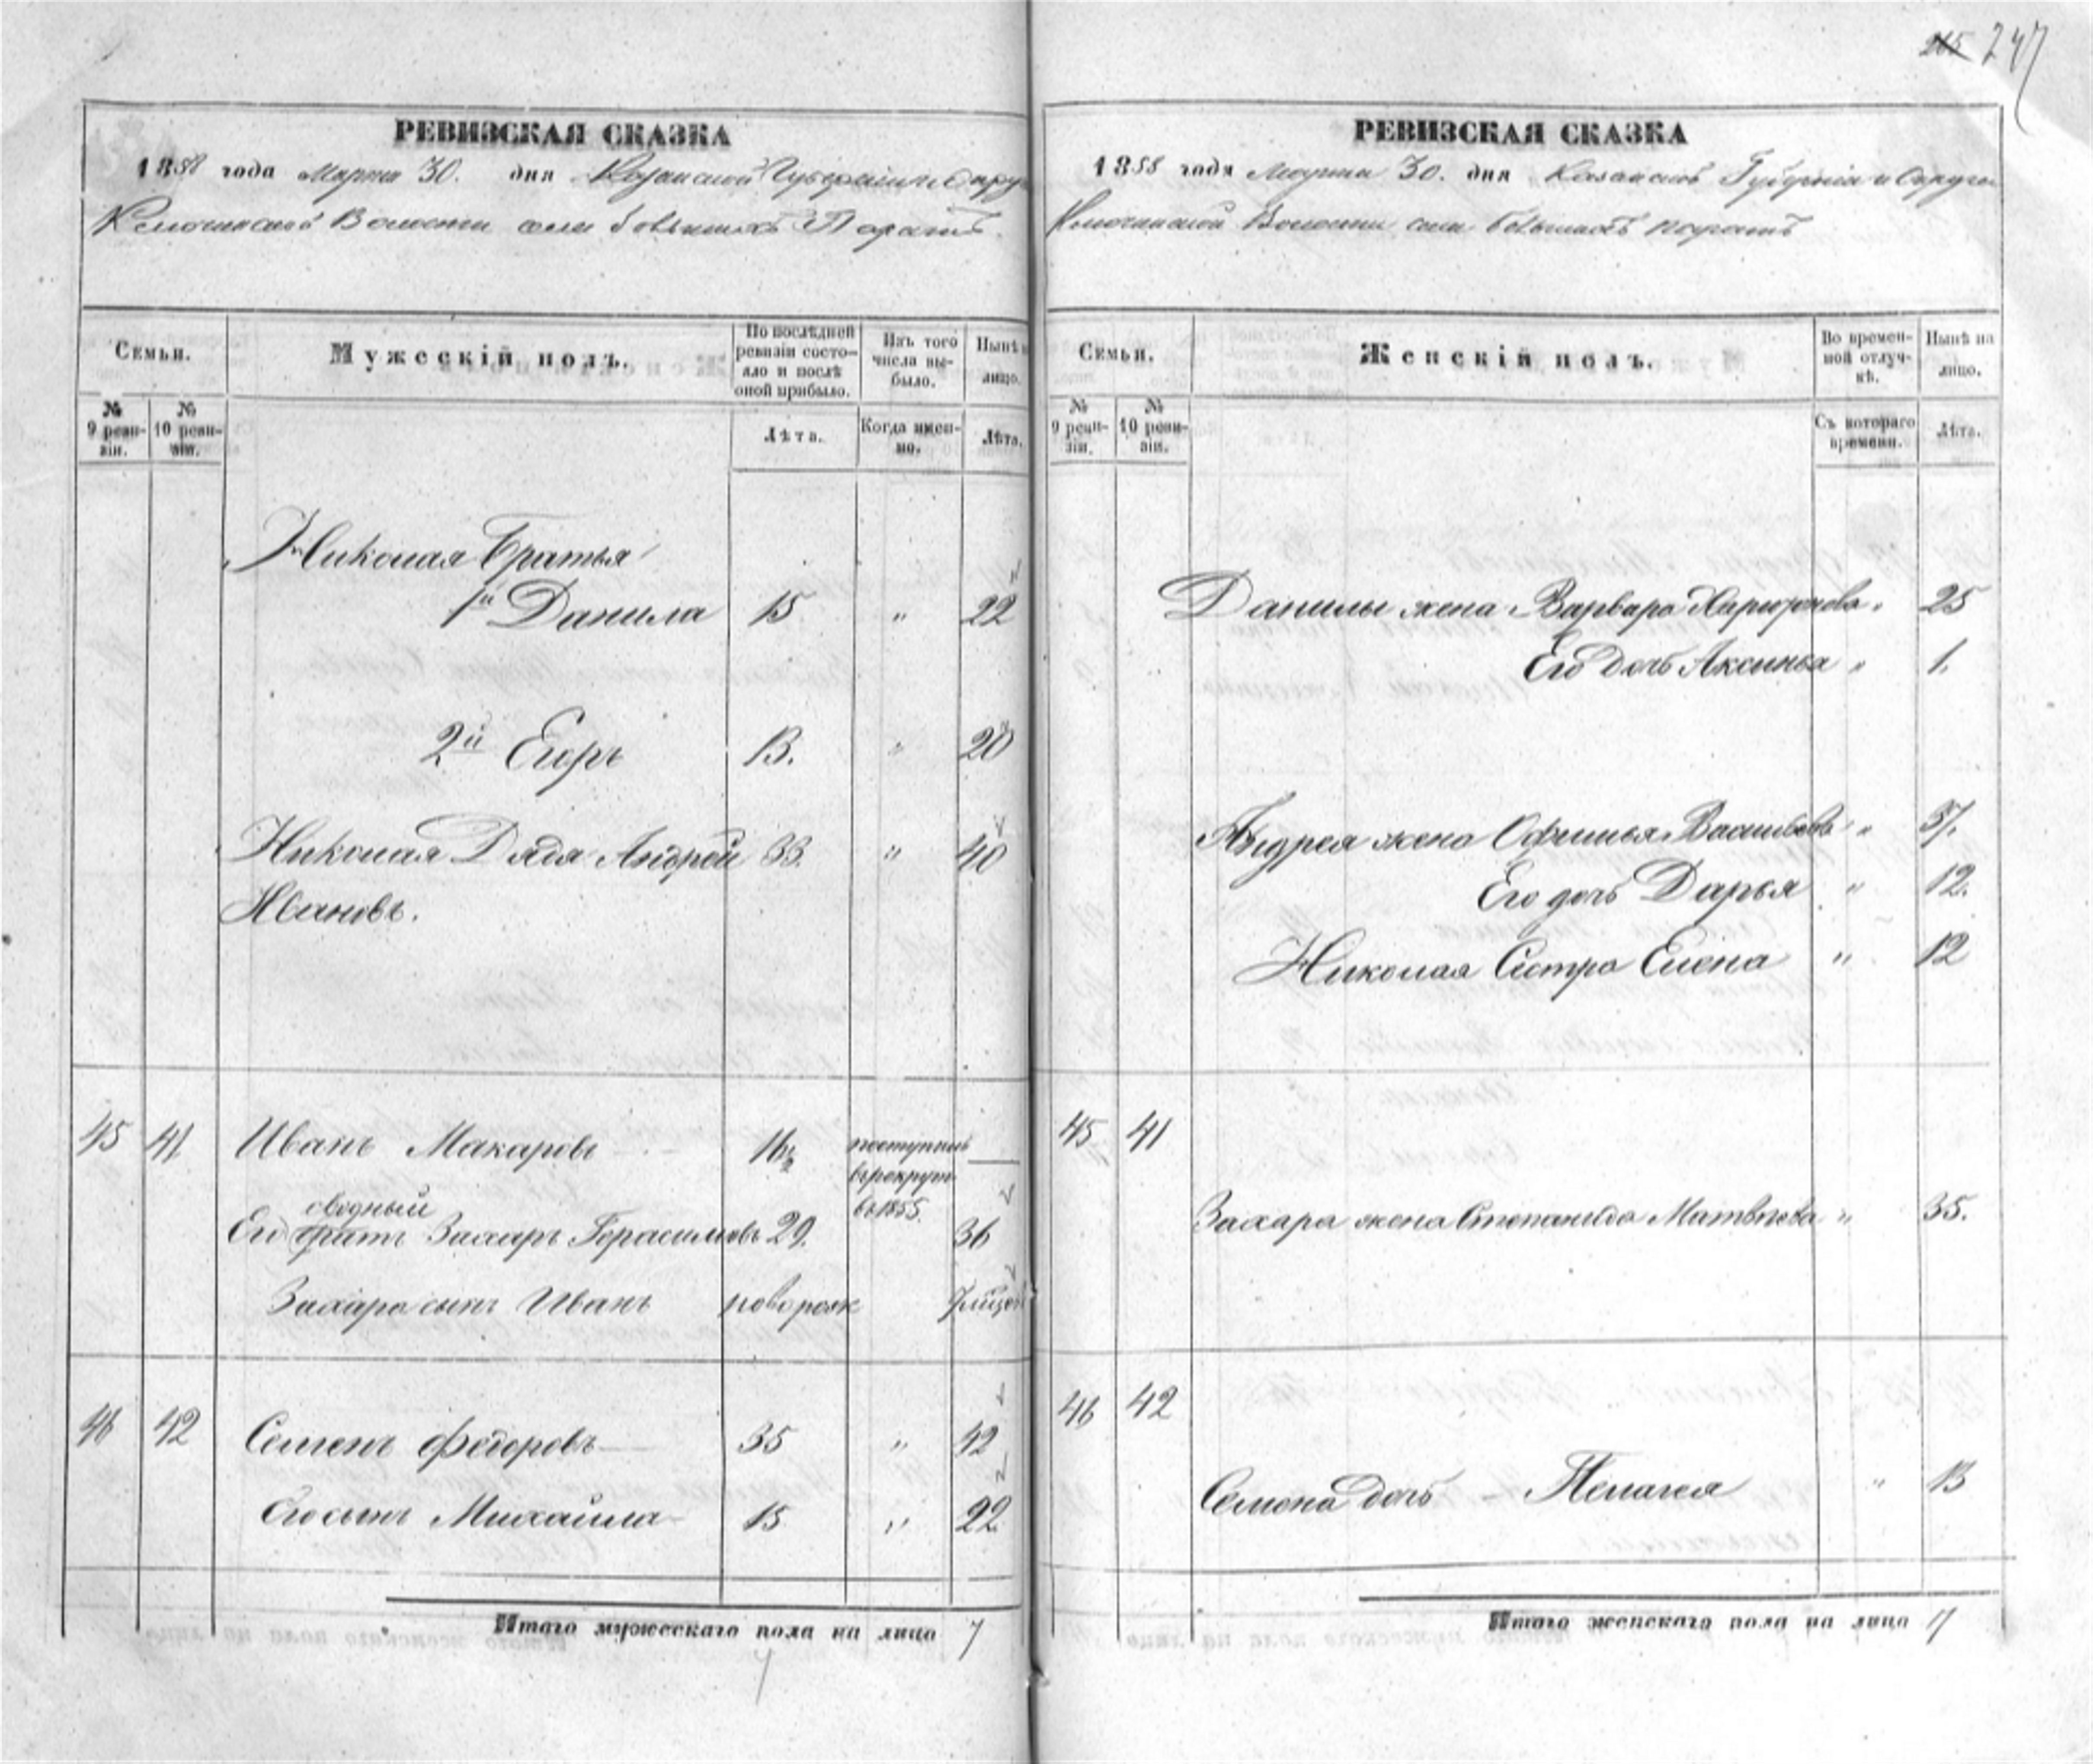 247
РЕВИЗСКАЯ СКАЗКА
1858 года Марта 30. дня Казанской Губерніи и Округа
Ключинской Волости села больших Парат
Семьи.
Мужескій полъ.
По послѣдней ревизіи состояло и послѣ оной прибыло.
Изъ того числа выбыло.
Нынѣ на лицо.
№ 9 ревизіи.
№ 10 ревизіи.
Лѣта.
Когда именно.
Лѣта.
Николая Братья
1й Данила 15 " 22
2й Егоръ 13. " 20
Николая Дядя Андрей 33. " 40
Ивановъ.
45 41 Иванъ Макаровъ 16½ поступилъ
въ рекруты
въ 1855.
сводный
Его братъ Захаръ Герасимовъ 29. 36
Захара сынъ Иванъ новорож
46 42 Семенъ Федоровъ 35 " 42
Его сынъ Михайла 15 " 22
Итого мужескаго пола на лицо 7
РЕВИЗСКАЯ СКАЗКА
1858 года Марта 30. дня Казанской Губерніи и Округа
Ключинской Волости села больших парат
Семьи.
Женскій полъ.
Во временной отлучкѣ.
Нынѣ на лицо.
№ 9 ревизіи.
№ 10 ревизіи.
Съ котораго времени.
Лѣта.
Данилы жена Варвара " 25
Его дочь Аксинья " 1.
Андрея жена Офимья Васильева " 37.
Его дочь Дарья " 12.
Николая Сестра Елена " 12
45 41
Захара жена Степанида Матвѣева " 35.
46 42
Семена дочь Пелагея " 13
Итого женскаго пола на лицо 7